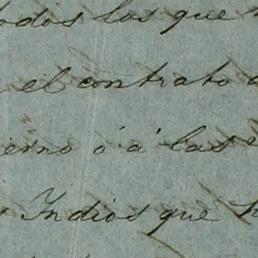 todos los que
el contrato
ierno ó á las
Indios que